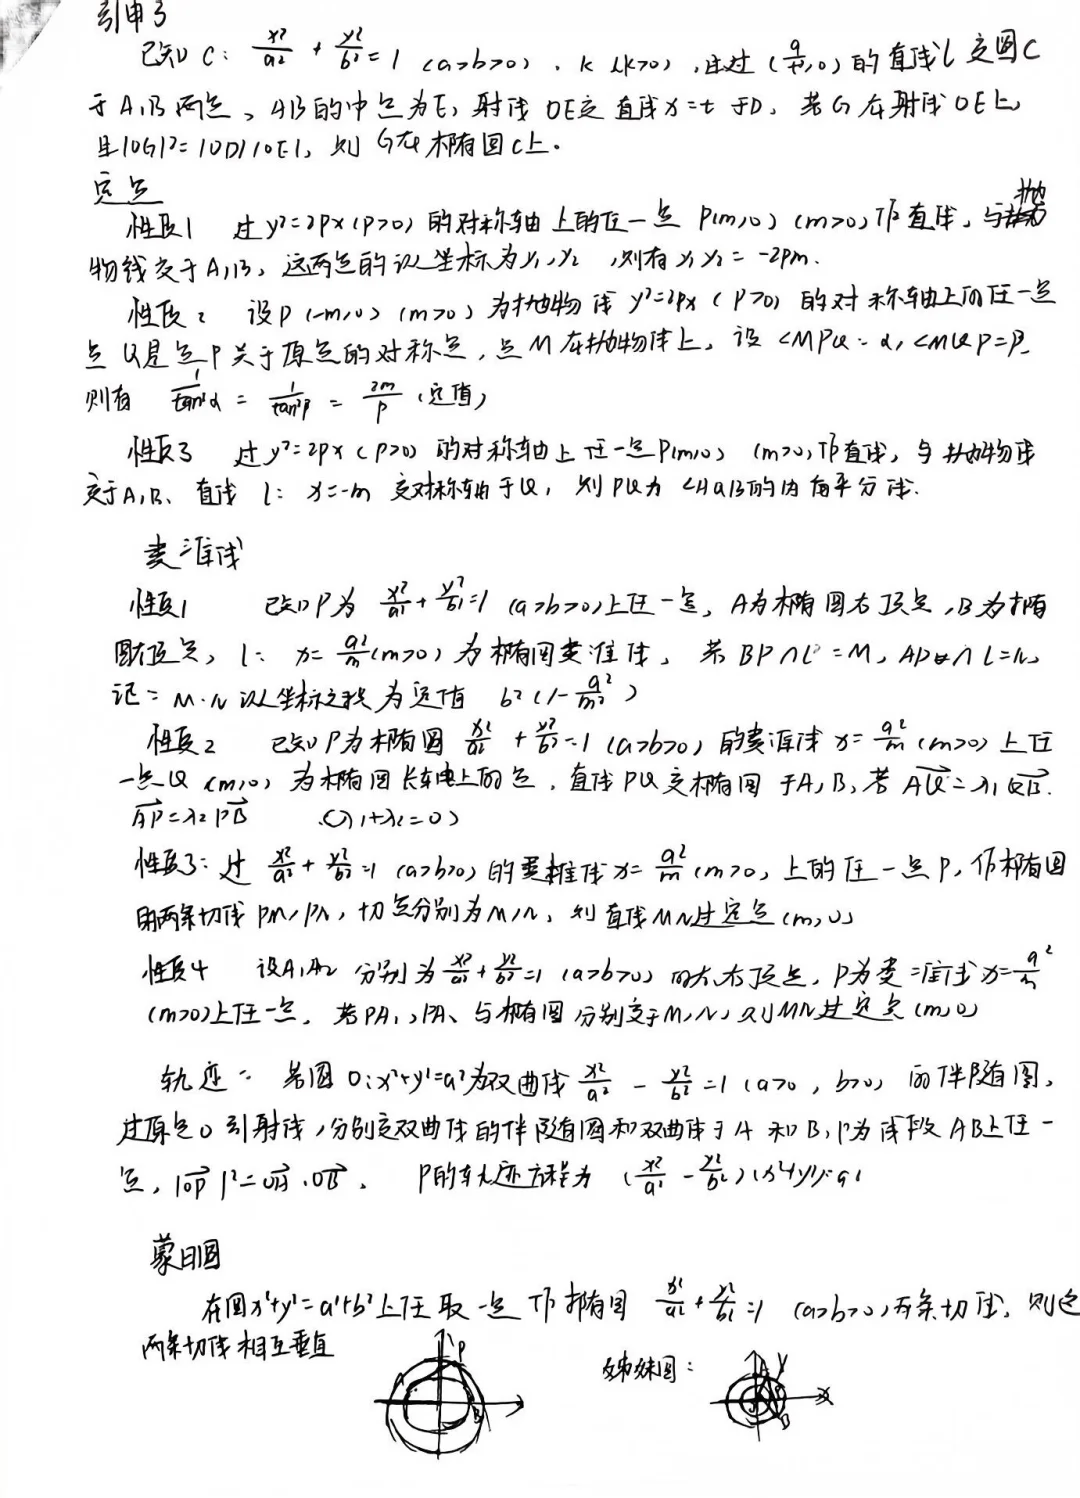 引申3
已知 C: x²/a² + y²/b² = 1 (a>b>0), k (k>0), 过 ( ,0) 的直线 l 交圆 C
于 A,B 两点, AB 的中点为 E, 射线 OE 交直线 x=t 于 D, 若 G 在射线 OE 上,
且 |OG|²=|OD||OE|, 则 G在椭圆C上.
定点
性质1 过 y²=2px (p>0) 的对称轴上的任一点 P(m,0) (m>0) 作直线, 与抛
物线交于 A,B, 这两点的纵坐标为 y₁,y₂, 则有 y₁y₂ = -2pm.
性质2 设 P(-m,0) (m>0) 为抛物线 y²=2px (p>0) 的对称轴上的任一点
点 Q是点P关于原点的对称点, 点 M在抛物线上, 设 ∠MPQ=α, ∠MQP=β
则有 1/tan²α = 1/tan²β = 2m/p (定值)
性质3 过 y²=2px (p>0) 的对称轴上任一点P(m,0) (m>0) 作直线, 与抛物线
交于A,B, 直线 l: x=-m 交对称轴于Q, 则 PQ为 ∠AQB的内角平分线.
类准线
性质1 已知P为 x²/a²+y²/b²=1 (a>b>0)上任一点, A为椭圆右顶点, B为椭
圆顶点, l: x=a²/m(m>0) 为椭圆类准线, 若 BP∩l=M, AP∩l=N,
记: M·N 纵坐标之积为定值 b²(1-a²/m²)
性质2 已知P为椭圆 x²/a²+y²/b²=1 (a>b>0) 的类准线 x=a²/m (m>0) 上任
一点 Q (m,0) 为椭圆长轴上的点, 直线 PQ交椭圆于A,B, 若 AQ=λ₁QB.
AP=λ₂PB (λ₁+λ₂=0)
性质3: 过 x²/a²+y²/b²=1 (a>b>0) 的类准线 x=a²/m (m>0) 上的任一点P, 作椭圆
的两条切线 PM,PN, 切点分别为M,N, 则直线MN过定点 (m,0)
性质4 设A₁A₂ 分别为 x²/a²+y²/b²=1 (a>b>0) 的左右顶点, P为类准线 x=a²/m
(m>0)上任一点, 若PA₁,PA₂ 与椭圆分别交于M,N, 则MN过定点 (m,0)
轨迹: 若圆 O: x²+y²=a²为双曲线 x²/a² - y²/b² = 1 (a>0, b>0) 的伴随圆,
过原点O引射线, 分别交双曲线的伴随圆和双曲线于A和B, P为线段AB上任一
点, |OP|²=OA·OB. P的轨迹方程为 (x²/a² - y²/b²)(x²+y²)=a²
蒙日圆
在圆x²+y²=a²+b²上任取一点作椭圆 x²/a²+y²/b²=1 (a>b>0)两条切线, 则这
两条切线相互垂直
姊妹圆:
P
A
B
A
y
x
B